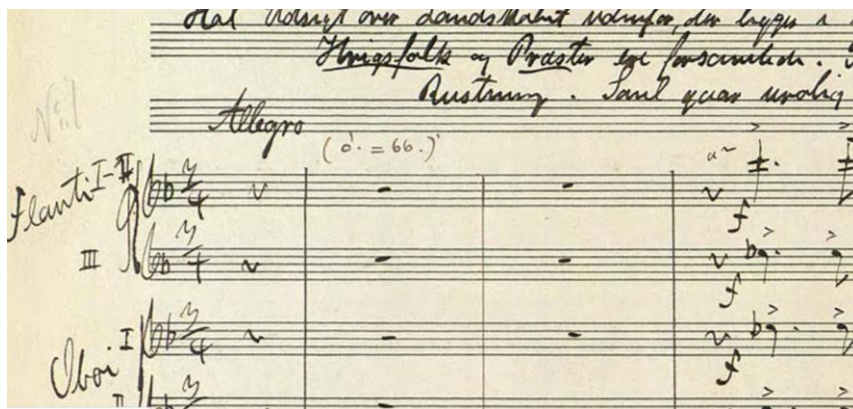 Hal Udsigt over Landskabet udenfor, der ligger i
Krigsfolk og Præster ere forsamlede.
Rustning. Saul gaar urolig
No. 1
Allegro
(♩. = 66.)
Flauti I-II
3/4
a 2
f
III
3/4
f
Oboi I
3/4
f
II